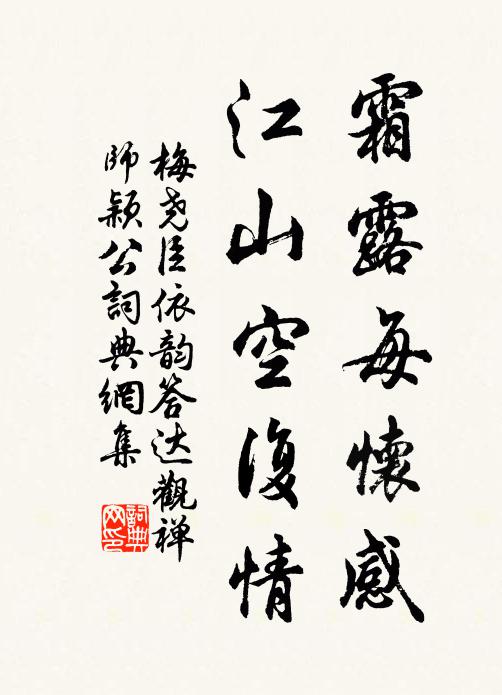 霜露每懷感
江山空復情
梅尧臣依韵答达觀禅
師颖公詞典網集
詞典网印